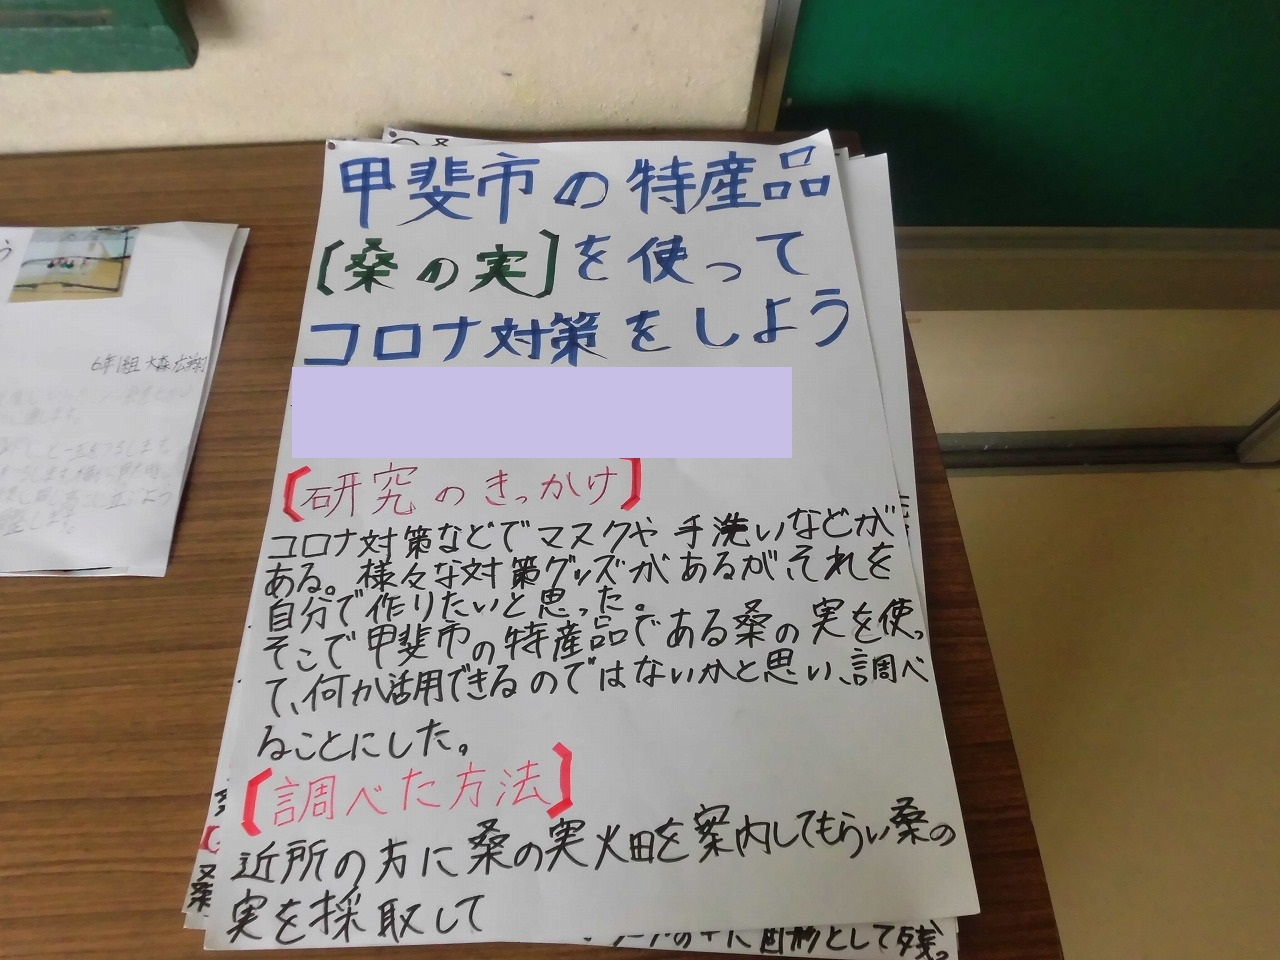 甲斐市の特産品
[桑の実]を使って
コロナ対策をしよう
[研究のきっかけ]
コロナ対策などでマスクや手洗いなどが
ある。様々な対策グッズがあるが、それを
自分で作りたいと思った。
そこで甲斐市の特産品である桑の実を使っ
て、何か活用できるのではないかと思い、調べ
ることにした。
[調べた方法]
近所の方に桑の実畑を案内してもらい桑の
実を採取して
6年1組 大森広翔
固形として残っ